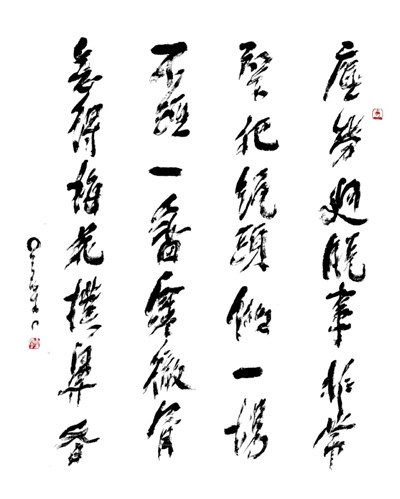 塵勞迥脫事非常
緊把繩頭做一場
不經一番寒徹骨
怎得梅花撲鼻香